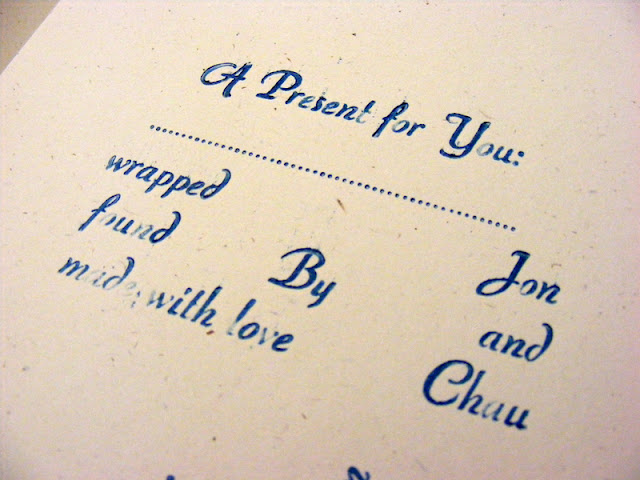 A Present for You:
wrapped
found
made, with love
By
Jon
and
Chau